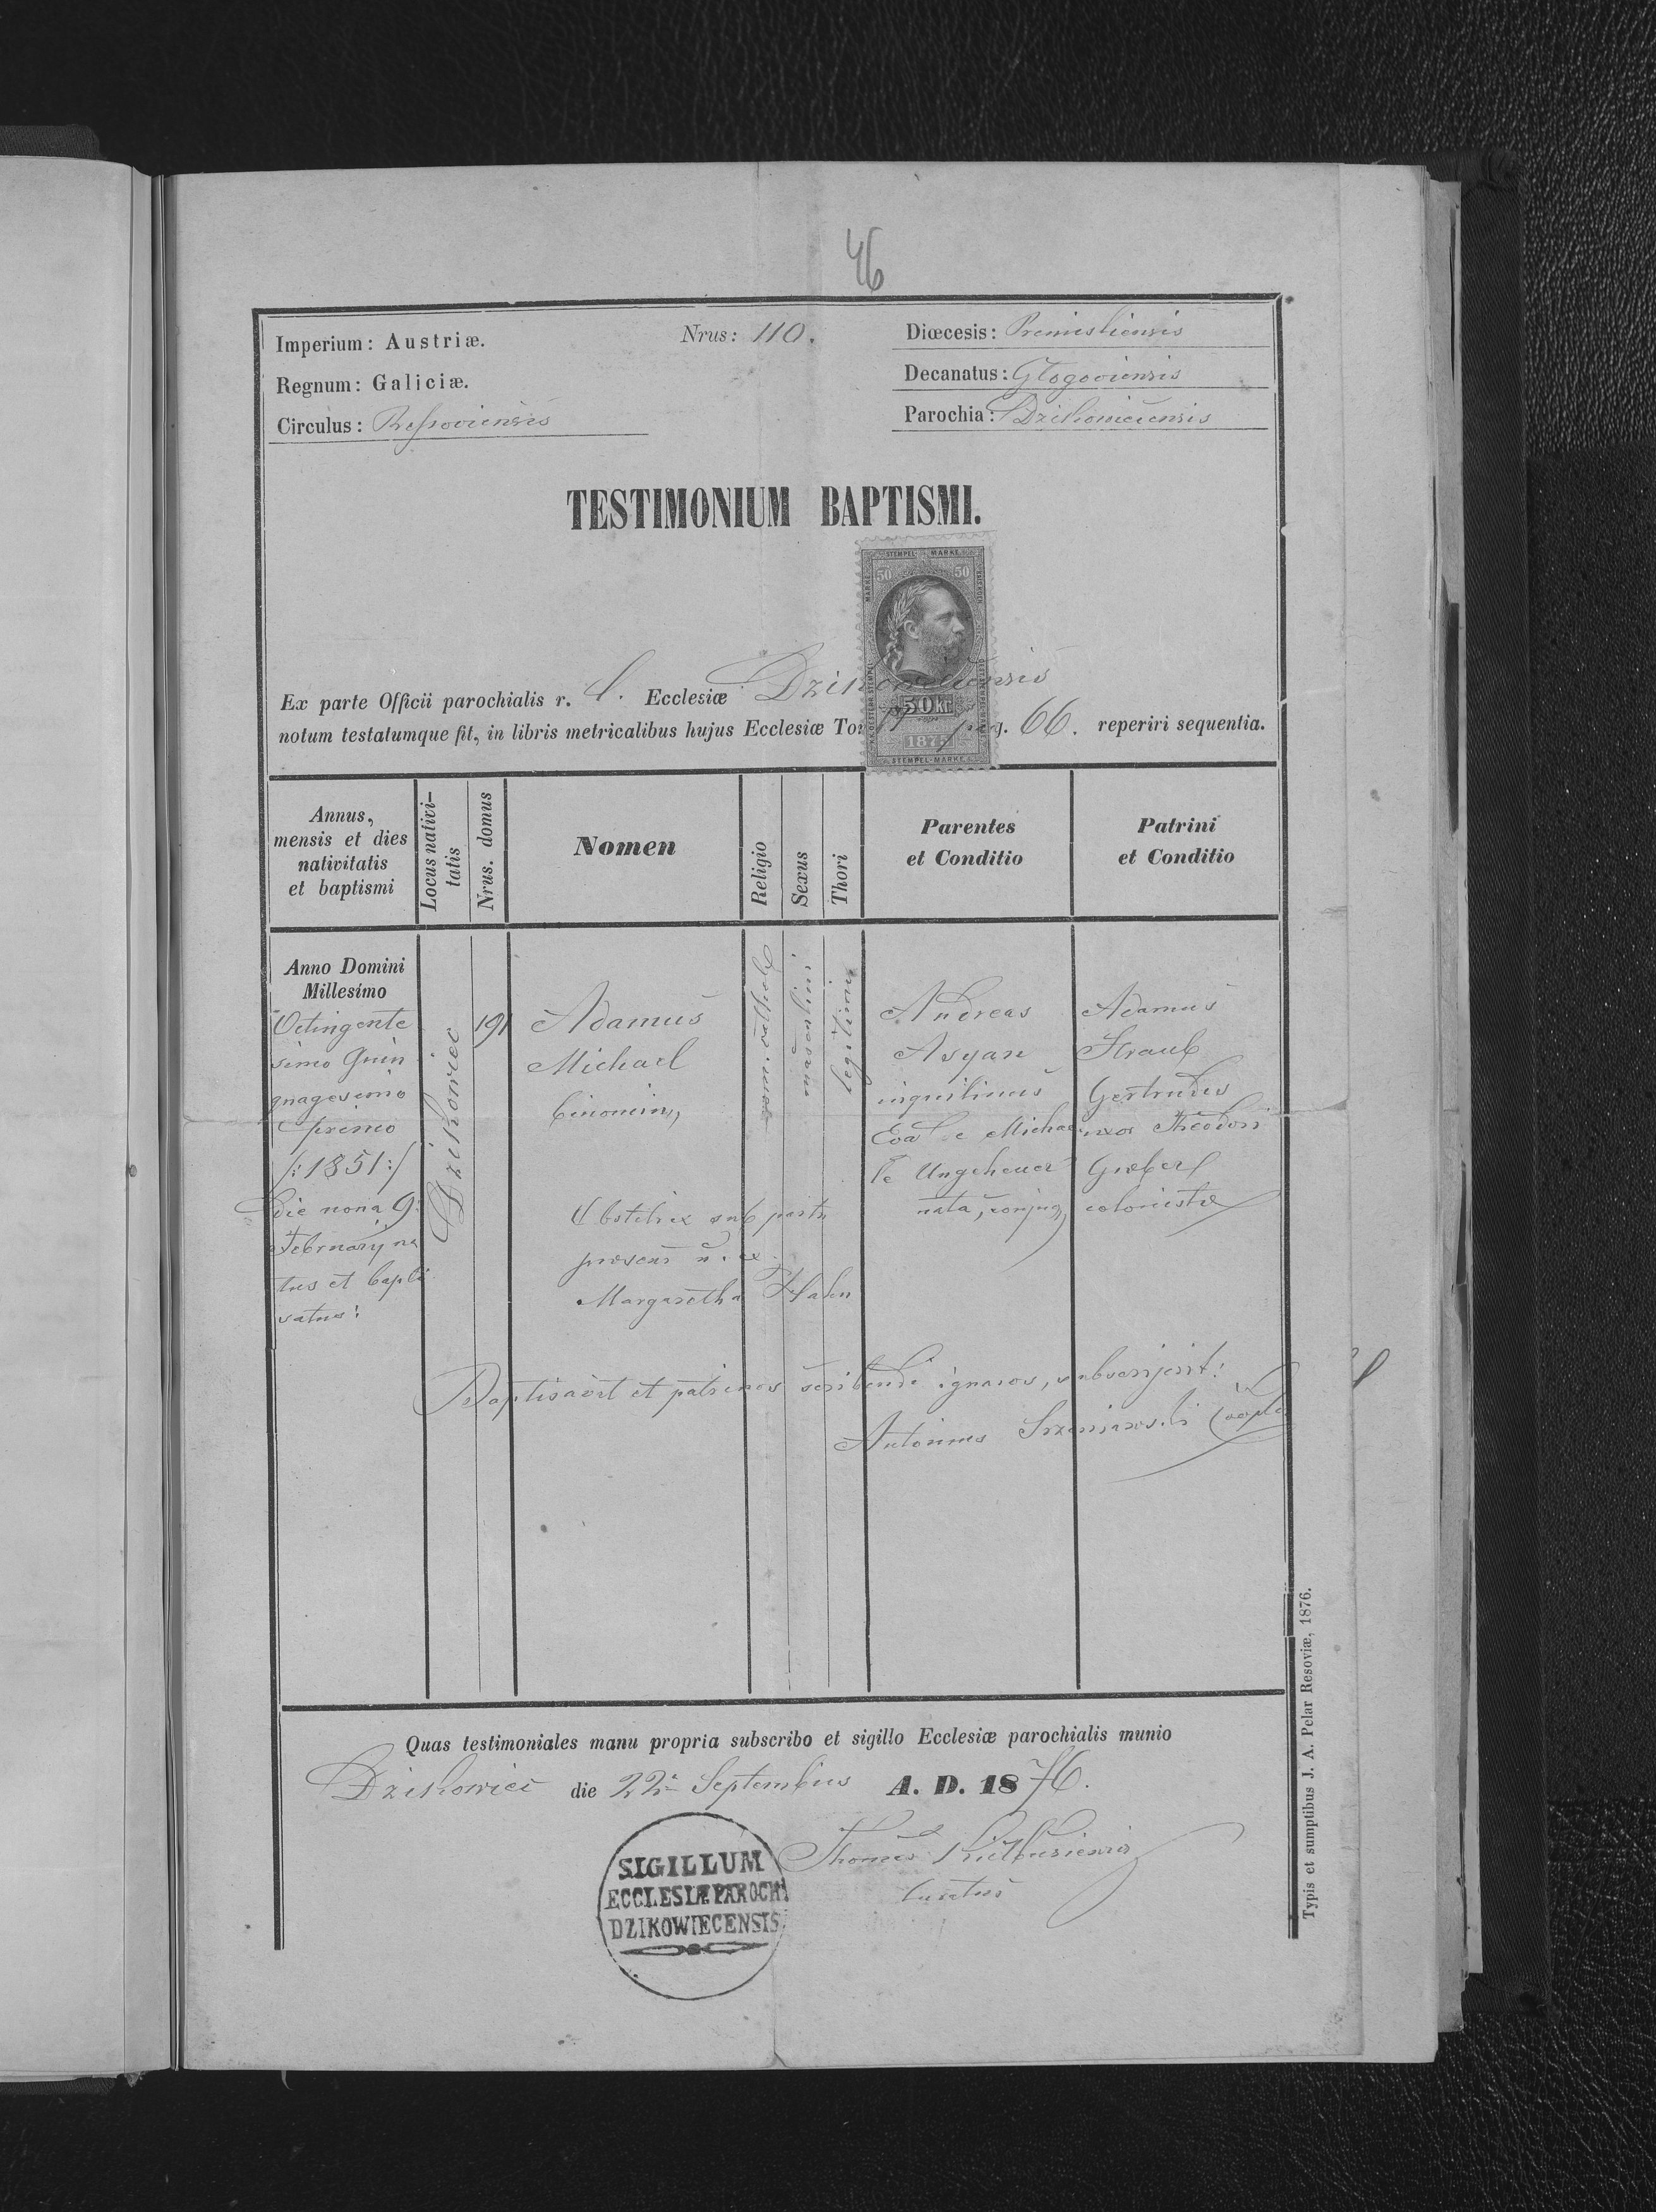 46
Imperium: Austriæ. Nrus: 110. Diœcesis: Premisliensis
Regnum: Galiciæ. Decanatus: Głogoviensis
Circulus: Ressoviensis Parochia: Dzikowiecensis
TESTIMONIUM BAPTISMI.
STEMPEL MARKE
50 50
50 kr
187
STEMPEL-MARKE
Ex parte Officii parochialis r. l. Ecclesiæ Dzikowiecensis
notum testatumque fit, in libris metricalibus hujus Ecclesiæ pag. 66. reperiri sequentia.
Annus,
mensis et dies
nativitatis
et baptismi
Locus nativi-
tatis
Nrus. domus
Nomen
Religio
Sexus
Thori
Parentes
et Conditio
Patrini
et Conditio
Anno Domini
Millesimo
Octingente
simo Quin
quagesimo
primo
/:1851:/
die nona 9
February na
tus et bapti
satus:
Dzikowiec
191
Adamus
Michael
binomin,
Obstetrix sub partu
presens
Margaretha Hahn
rom. cathol
masculini
legitimi
Andreas
Asyan
inquilinus
Eva e Michae
le Ungeheuer
nata, conjug,
Adamus
Straub
Gertrudis
uxor Theodori
coloniste
Baptisavit et patrinos scribendi ignaros, subscripsit:
Antonius
Quas testimoniales manu propria subscribo et sigillo Ecclesiæ parochialis munio
Dzikowiec die 22 Septembris A. D. 1876.
Thomas
Curatus
SIGILLUM
ECCLESIÆ PAROCH
DZIKOWIECENSIS
Typis et sumptibus J. A. Pelar Resoviæ, 1876.